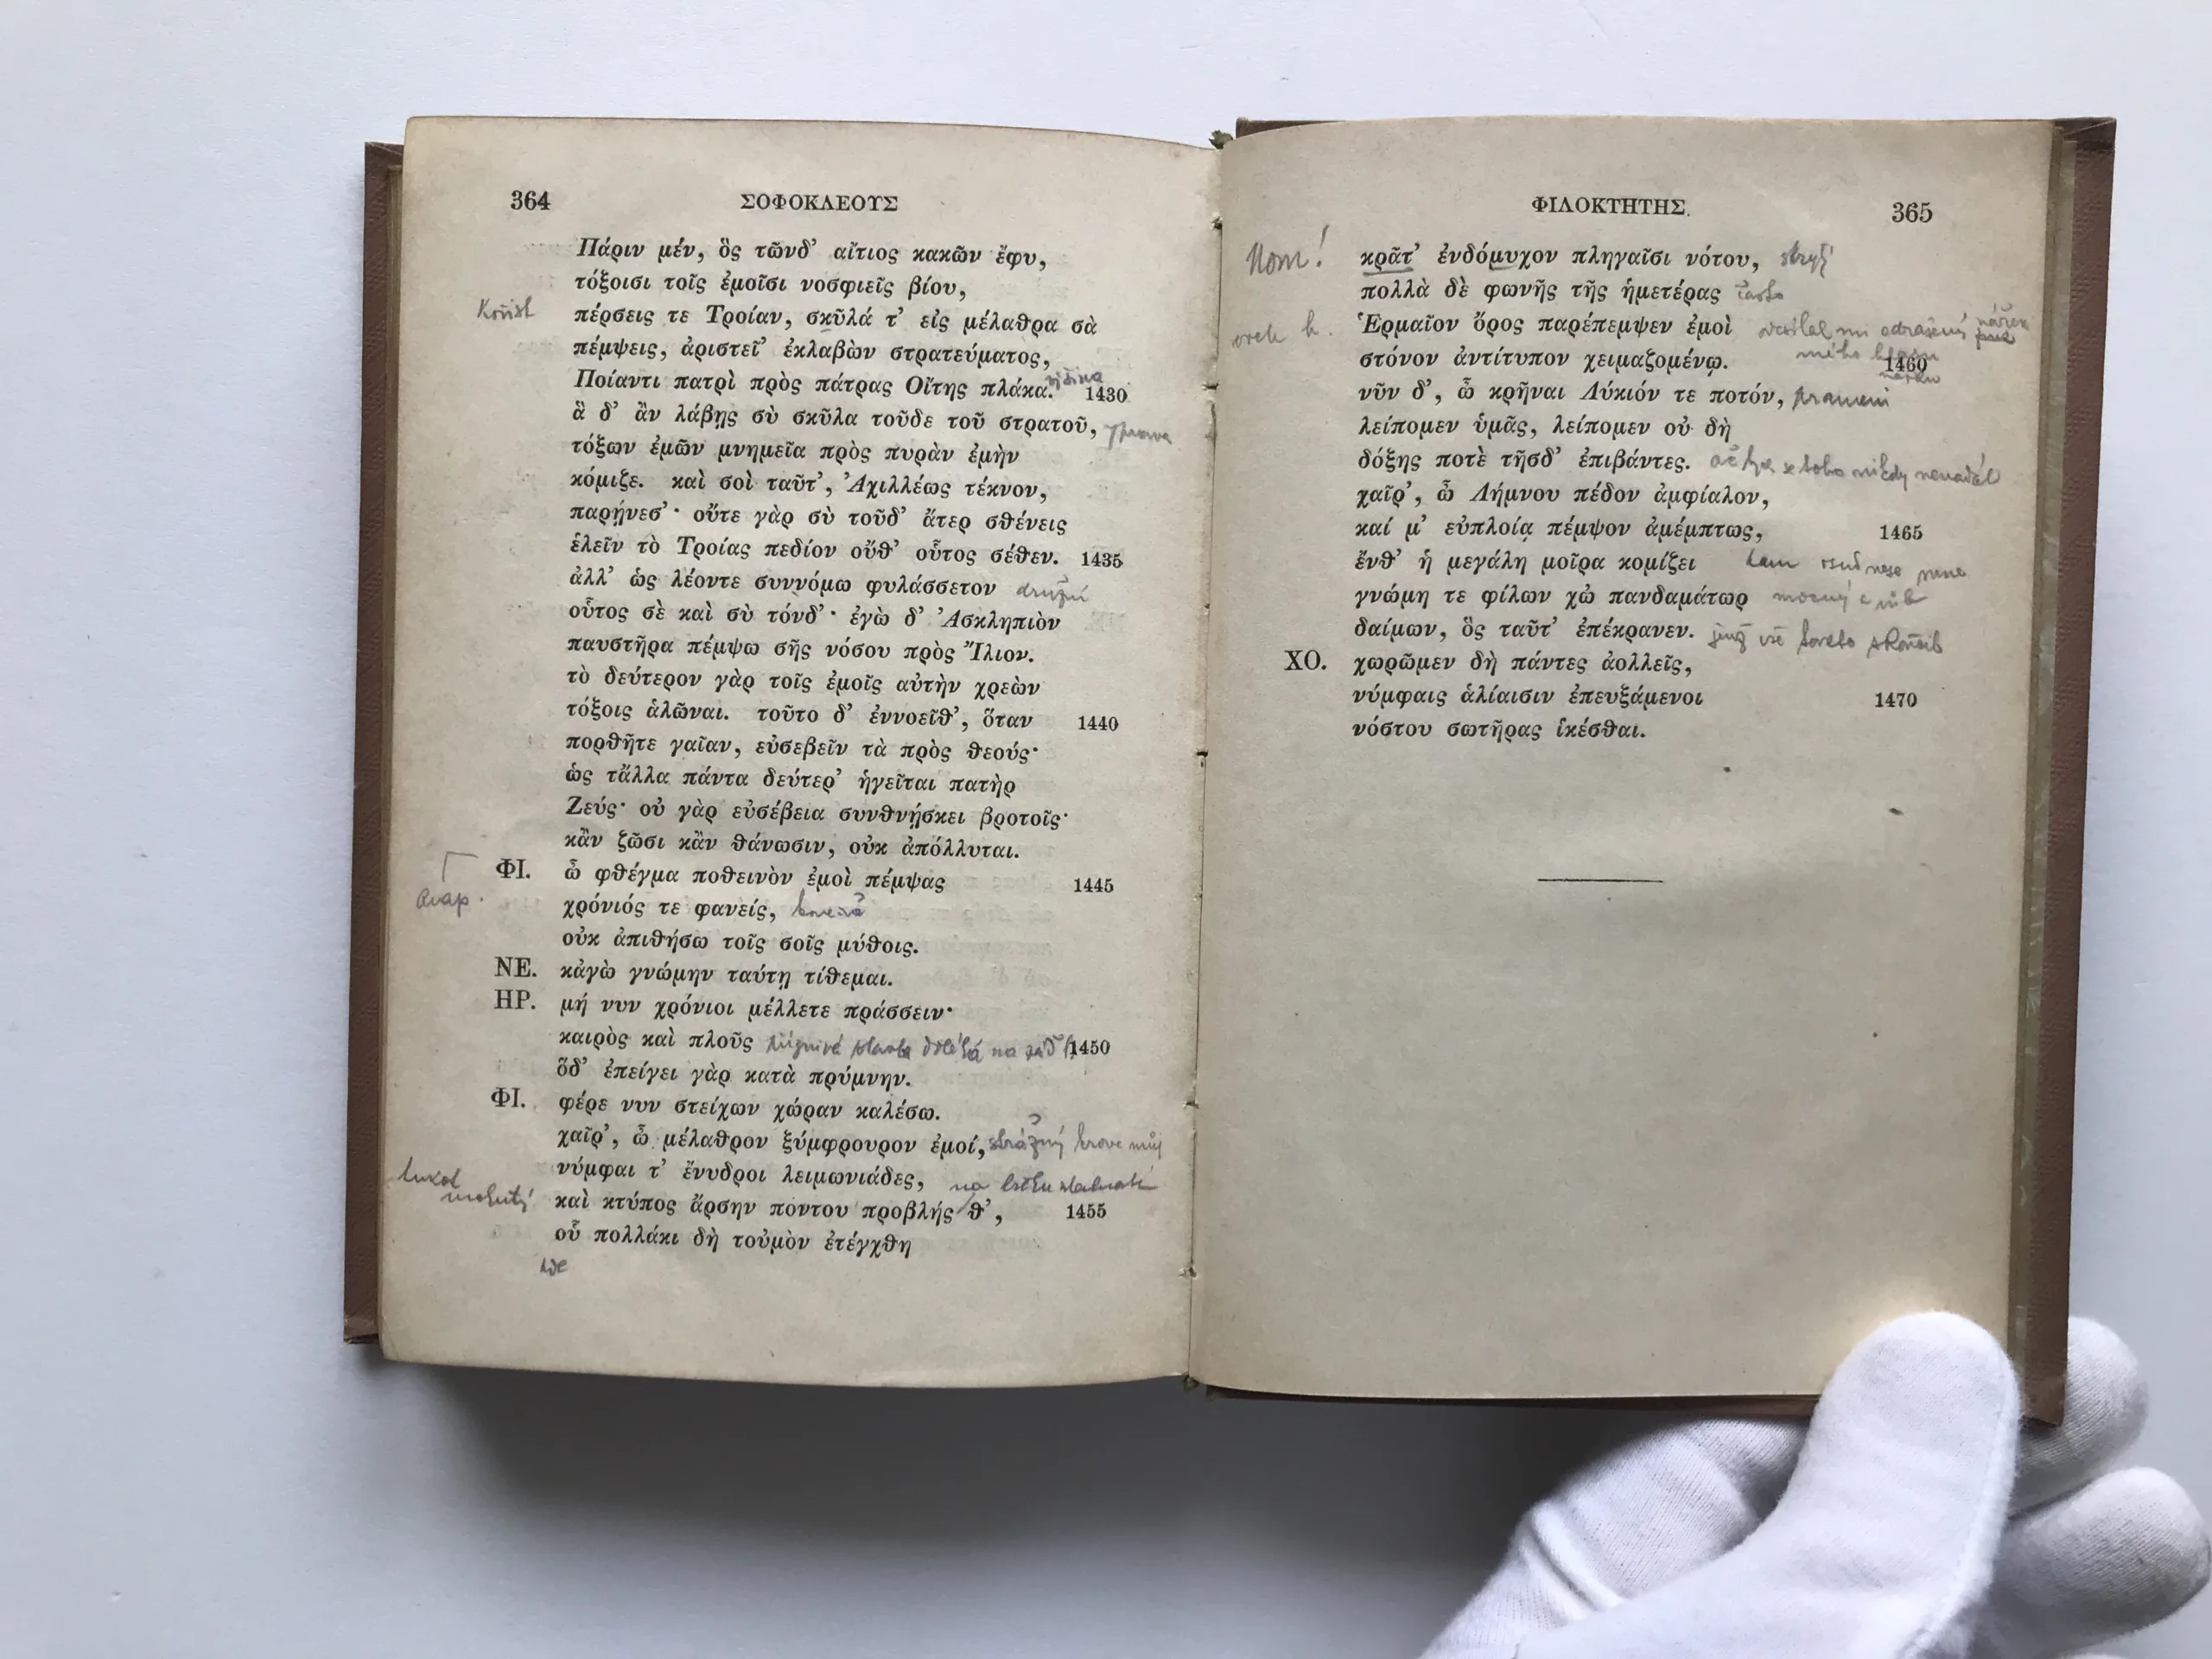 364 ΣΟΦΟΚΛΕΟΥΣ
Πάριν μέν, ὃς τῶνδ’ αἴτιος κακῶν ἔφυ,
τόξοισι τοῖς ἐμοῖσι νοσφιεῖς βίου,
Kořist πέρσεις τε Τροίαν, σκῦλά τ’ εἰς μέλαθρα σὰ
πέμψεις, ἀριστεῖ’ ἐκλαβὼν στρατεύματος,
Ποίαντι πατρὶ πρὸς πάτρας Οἴτης πλάκα. 1430
ἃ δ’ ἂν λάβῃς σὺ σκῦλα τοῦδε τοῦ στρατοῦ,
τόξων ἐμῶν μνημεῖα πρὸς πυρὰν ἐμὴν
κόμιζε. καὶ σοὶ ταῦτ’, Ἀχιλλέως τέκνον,
παρῄνεσ’· οὔτε γὰρ σὺ τοῦδ’ ἄτερ σθένεις
ἑλεῖν τὸ Τροίας πεδίον οὔθ’ οὗτος σέθεν. 1435
ἀλλ’ ὡς λέοντε συννόμω φυλάσσετον družní
οὗτος σὲ καὶ σὺ τόνδ’· ἐγὼ δ’ Ἀσκληπιὸν
παυστῆρα πέμψω σῆς νόσου πρὸς Ἴλιον.
τὸ δεύτερον γὰρ τοῖς ἐμοῖς αὐτὴν χρεὼν
τόξοις ἁλῶναι. τοῦτο δ’ ἐννοεῖθ’, ὅταν 1440
πορθῆτε γαῖαν, εὐσεβεῖν τὰ πρὸς θεούς·
ὡς τἄλλα πάντα δεύτερ’ ἡγεῖται πατὴρ
Ζεύς· οὐ γὰρ εὐσέβεια συνθνῄσκει βροτοῖς·
κἂν ζῶσι κἂν θάνωσιν, οὐκ ἀπόλλυται.
ΦΙ. ὦ φθέγμα ποθεινὸν ἐμοὶ πέμψας 1445
anap. χρόνιός τε φανείς,
οὐκ ἀπιθήσω τοῖς σοῖς μύθοις.
ΝΕ. κἀγὼ γνώμην ταύτῃ τίθεμαι.
ΗΡ. μή νυν χρόνιοι μέλλετε πράσσειν·
καιρὸς καὶ πλοῦς 1450
ὅδ’ ἐπείγει γὰρ κατὰ πρύμνην.
ΦΙ. φέρε νυν στείχων χώραν καλέσω.
χαῖρ’, ὦ μέλαθρον ξύμφρουρον ἐμοί, strážný krove můj
νύμφαι τ’ ἔνυδροι λειμωνιάδες,
καὶ κτύπος ἄρσην πόντου προβλής θ’, 1455
οὗ πολλάκι δὴ τοὐμὸν ἐτέγχθη
kde
ΦΙΛΟΚΤΗΤΗΣ. 365
Hom! κρᾶτ’ ἐνδόμυχον πληγαῖσι νότου, skrytý
πολλὰ δὲ φωνῆς τῆς ἡμετέρας často
Ἑρμαῖον ὄρος παρέπεμψεν ἐμοὶ
στόνον ἀντίτυπον χειμαζομένῳ. 1460
νῦν δ’, ὦ κρῆναι Λύκιόν τε ποτόν, prameni
λείπομεν ὑμᾶς, λείπομεν οὐ δὴ
δόξης ποτὲ τῆσδ’ ἐπιβάντες.
χαῖρ’, ὦ Λήμνου πέδον ἀμφίαλον,
καί μ’ εὐπλοίᾳ πέμψον ἀμέμπτως, 1465
ἔνθ’ ἡ μεγάλη μοῖρα κομίζει kam osud nese mne
γνώμη τε φίλων χὠ πανδαμάτωρ
δαίμων, ὃς ταῦτ’ ἐπέκρανεν.
ΧΟ. χωρῶμεν δὴ πάντες ἀολλεῖς,
νύμφαις ἁλίαισιν ἐπευξάμενοι 1470
νόστου σωτῆρας ἱκέσθαι.